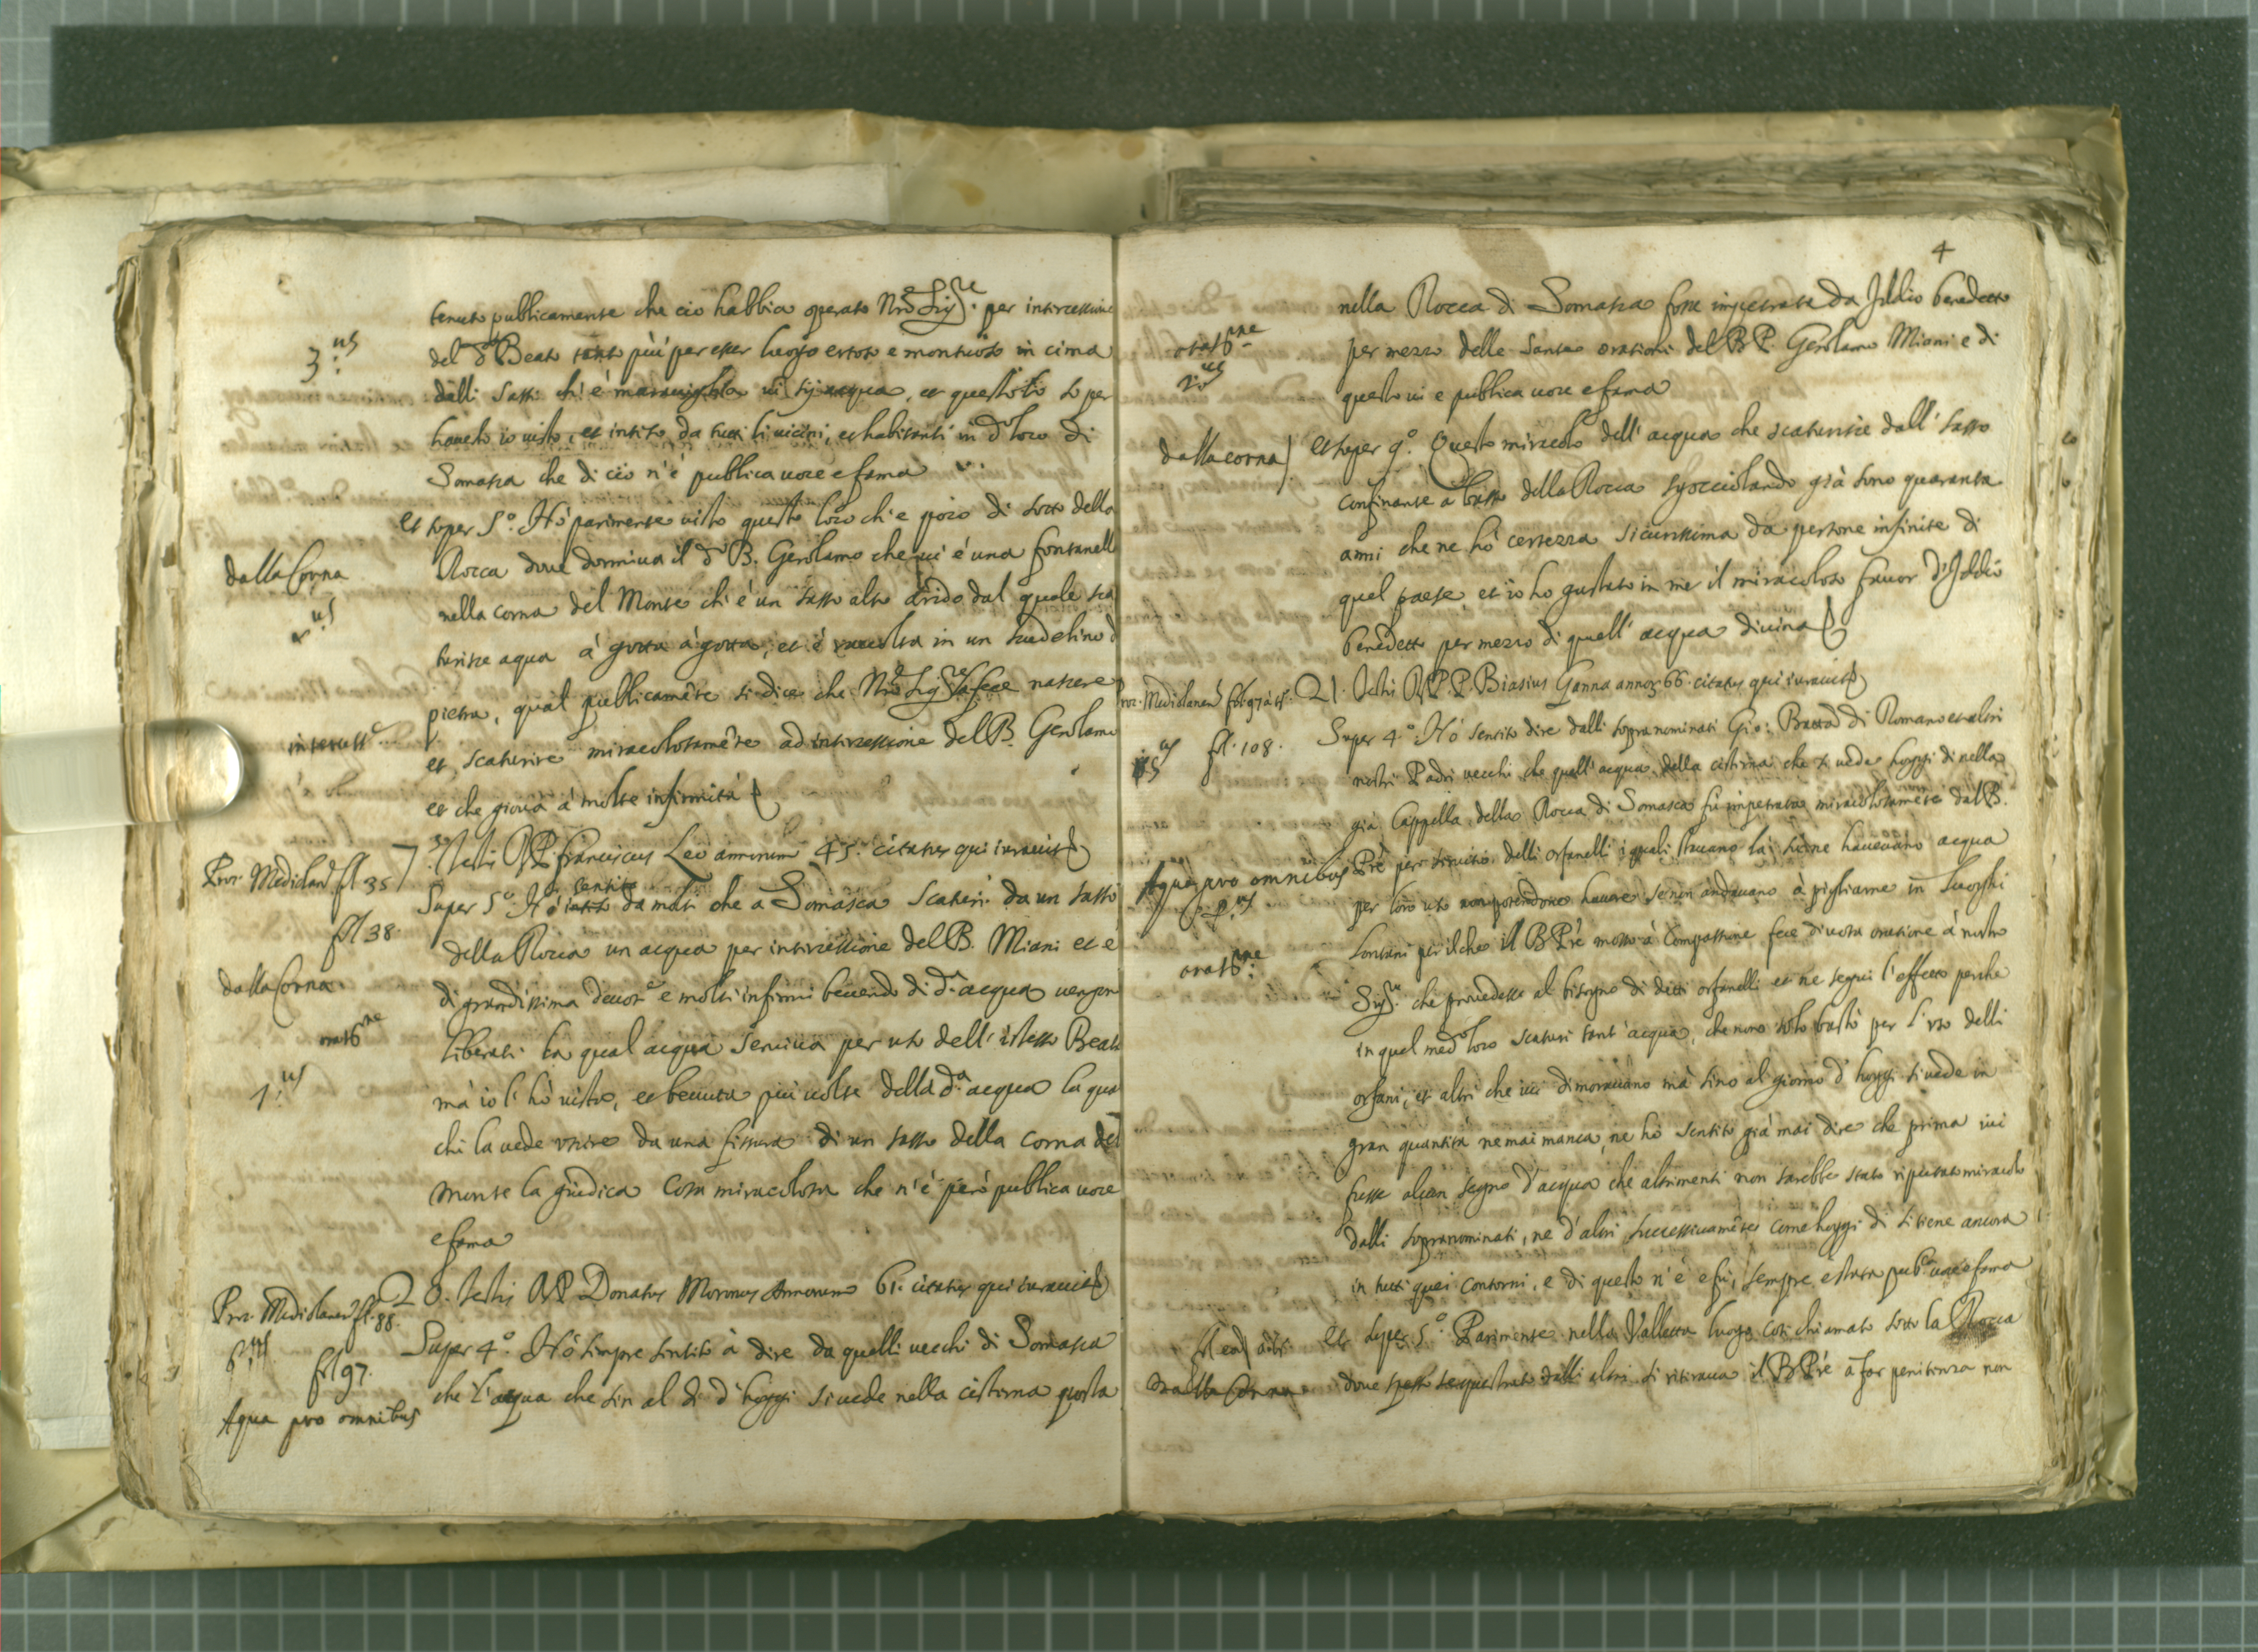 tenuto publicamente che ciò habbia operato Nro Sig.re per intercessione
3.us
del do Beato tanto più per esser luogo ertoso e montuoso in cima
dalli sassi ch'è maraviglia vi sij acqua, et questo so per
haverlo io visto, et intiso da tutti li vicini, et habitanti in do loco di
Somasca che di ciò n'è publica voce e fama
et super 5.o Hò parimente visto questo loco ch'e poco di sotto della
dalla Corna
Rocca dove dormiva il do B. Gerolamo che vi è una fontanella
nella corna del Monte ch'è un sasso alto arido dal quale sca
turisce aqua à gotta à gotta, et è raccolta in un
pietra, qual publicamẽte si dice che Nro Sig.re la fece nascere
et scaturire miracolosamẽte ad intercessione del B. Gerolamo
et che giova à molte infirmità
Proc. Mediolan fol 35
7 Testis R.P. Franciscus Leo annorum 45. citatus qui iuravit
fol 38.
Super 5.o Hò sentito da molti che a Somasca scaturì da un sasso
della Rocca un acqua per intercessione del B. Miani et e
dalla Corna.
di grandissima devot.e e molti infirmi bevendo di da acqua vengon
orat.ne
liberati la qual acqua serviva per uso dell'istesso Beato
1.us
mà io l'hò vista, et bevuta più volte della da acqua la qua
chi la vede uscire da una fissura di un sasso della corna del
monte la giudica cosa miracolosa che n'è però publica voce
e fama
Proc. Mediolanen fol. 88.
20. Testis R.P. Donatus Moronus Annorum 61. citatus qui iuravit
6.us
fol 97.
Super 4.o Hò sempre sentito à dire da quelli vecchi di Somasca
Aqua pro omnibus
che l'aqua che sin al dì d'hoggi si vede nella cisterna posta
4
nella Rocca di Somasca fosse impetrata da Iddio benedetto
orat.ne
per mezzo delle sante orationi del B.P. Gerolamo Miani e di
2.us
questo vi e publica voce e fama
dalla corna
et super 9.o Questo miracolo dell'acqua che scaturisce dall'sasso
confinante a basso della Rocca già sono quaranta
anni che ne hò certezza sicurissima da persone infinite di
quel paese, et io ho gustato in me il miracoloso favor d'Iddio
benedetto per mezzo di quell'acqua divina
Proc. Mediolanen fol. 97
21. Testis R.P.P. Biasius Ganna annor. 66. citatus qui iuravit
fol. 108.
Super 4.o Hò sentito dire dalli sopranominati Gio: Batta di Romano et altri
nostri Padri vecchi che quell'acqua della cisterna che si vede hoggi di nella
già Cappella della Rocca di Somasca fù impetrata miracolosamẽte dal B.
Aqua pro omnibus
Prẽ per servitio delli orfanelli i quali stavano là, siche havevano acqua
per loro uso non potendone havere se non andavano à pigliarne in luoghi
orat.ne
lontani per il che il B Prẽ mosso à Compassione fece divota oratione à nostro
Sig.re che provedesse al bisogno di detti orfanelli et ne seguì l'effetto perche
in quel medo loco scaturì tant'acqua, che non solo bastò per l'uso delli
orfani, et altri che ivi dimoravano mà sino al giorno d'hoggi si vede in
gran quantità ne mai manca, ne hò sentito già mai dire che prima ivi
fusse alcun segno d'acqua che altrimenti non sarebbe stato riputato miracolo
dalli sopranominati, ne d'altri successivamẽte come hoggi dì si tiene ancora
in tutti quei contorni, e di questo n'è e fù, sempre è stata pub.ca voce e fama
et super 5.o Parimente nella Valletta luogo così chiamato sotto la Rocca
dalla Corna
dove spesso sequestrato dalli altri si ritirava il B Prẽ à far penitenza non